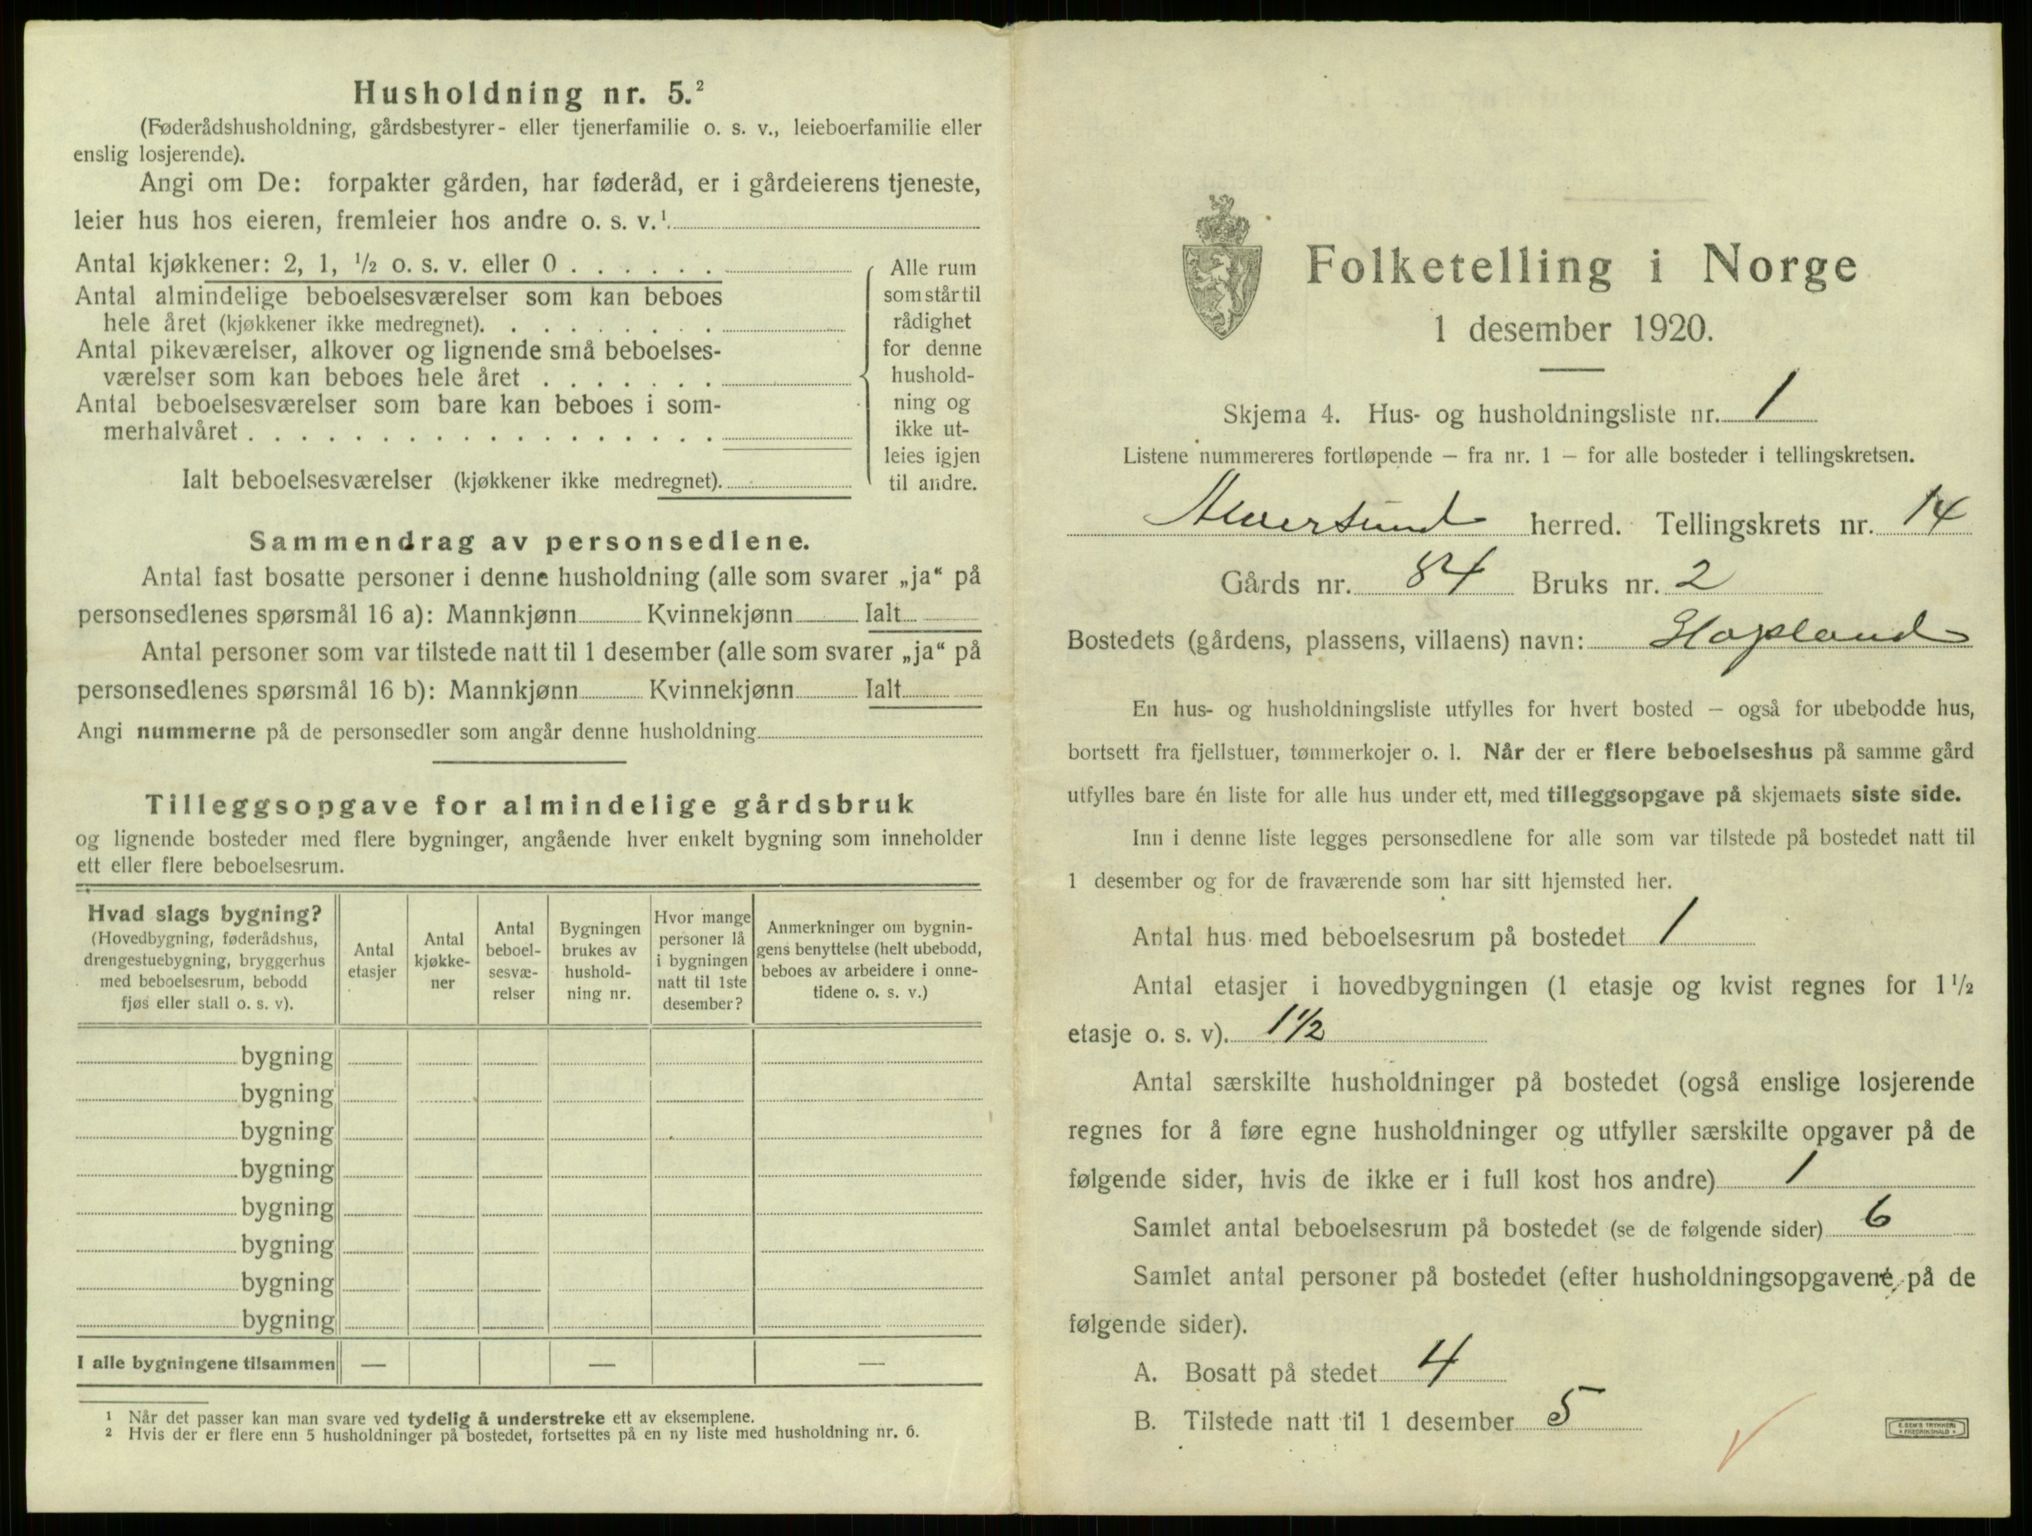 Husholdning nr. 5.²
(Føderådshusholdning, gårdsbestyrer- eller tjenerfamilie o. s. v., leieboerfamilie eller
enslig losjerende).
Angi om De: forpakter gården, har føderåd, er i gårdeierens tjeneste,
leier hus hos eieren, fremleier hos andre o. s. v.¹
Antal kjøkkener: 2, 1, ½ o. s. v. eller 0 . . . . . .
Antal almindelige beboelsesværelser som kan beboes
hele året (kjøkkener ikke medregnet). . . . . . . . .
Antal pikeværelser, alkover og lignende små beboelses-
værelser som kan beboes hele året . . . . . . .
Antal beboelsesværelser som bare kan beboes i som-
merhalvåret . . . . . . . . . . . . . . . . . .
Ialt beboelsesværelser (kjøkkener ikke medregnet).
Alle rum
som står til
rådighet
for denne
hushold-
ning og
ikke ut-
leies igjen
til andre.
Sammendrag av personsedlene.
Antal fast bosatte personer i denne husholdning (alle som svarer „ja“ på
personsedlenes spørsmål 16 a): Mannkjønn Kvinnekjønn Ialt
Antal personer som var tilstede natt til 1 desember (alle som svarer „ja“ på
personsedlenes spørsmål 16 b): Mannkjønn Kvinnekjønn Ialt
Angi nummerne på de personsedler som angår denne husholdning
Tilleggsopgave for almindelige gårdsbruk
og lignende bosteder med flere bygninger, angående hver enkelt bygning som inneholder
ett eller flere beboelsesrum.
Hvad slags bygning?
(Hovedbygning, føderådshus,
drengestuebygning, bryggerhus
med beboelsesrum, bebodd
fjøs eller stall o. s. v).
Antal
etasjer
Antal
kjøkke-
ner
Antal
beboel-
sesvæ-
relser
Bygningen
brukes av
hushold-
ning nr.
Hvor mange
personer lå
i bygningen
natt til 1ste
desember?
Anmerkninger om bygnin-
gens benyttelse (helt ubebodd,
beboes av arbeidere i onne-
tidene o. s. v.)
bygning
bygning
bygning
bygning
bygning
bygning
bygning
bygning
I alle bygningene tilsammen — — —
¹ Når det passer kan man svare ved tydelig å understreke ett av eksemplene.
² Hvis der er flere enn 5 husholdninger på bostedet, fortsettes på en ny liste med husholdning nr. 6.
Folketelling i Norge
1 desember 1920.
Skjema 4. Hus- og husholdningsliste nr. 1
Listene nummereres fortløpende – fra nr. 1 – for alle bosteder i tellingskretsen.
Alversund herred. Tellingskrets nr. 14
Gårds nr. 84 Bruks nr. 2
Bostedets (gårdens, plassens, villaens) navn: Hopland
En hus- og husholdningsliste utfylles for hvert bosted – også for ubebodde hus,
bortsett fra fjellstuer, tømmerkojer o. l. Når der er flere beboelseshus på samme gård
utfylles bare én liste for alle hus under ett, med tilleggsopgave på skjemaets siste side.
Inn i denne liste legges personsedlene for alle som var tilstede på bostedet natt til
1 desember og for de fraværende som har sitt hjemsted her.
Antal hus med beboelsesrum på bostedet 1
Antal etasjer i hovedbygningen (1 etasje og kvist regnes for 1½
etasje o. s. v). 1½
Antal særskilte husholdninger på bostedet (også enslige losjerende
regnes for å føre egne husholdninger og utfyller særskilte opgaver på de
følgende sider, hvis de ikke er i full kost hos andre) 1
Samlet antal beboelsesrum på bostedet (se de følgende sider) 6
Samlet antal personer på bostedet (efter husholdningsopgavene på de
følgende sider).
A. Bosatt på stedet 4
B. Tilstede natt til 1 desember 5